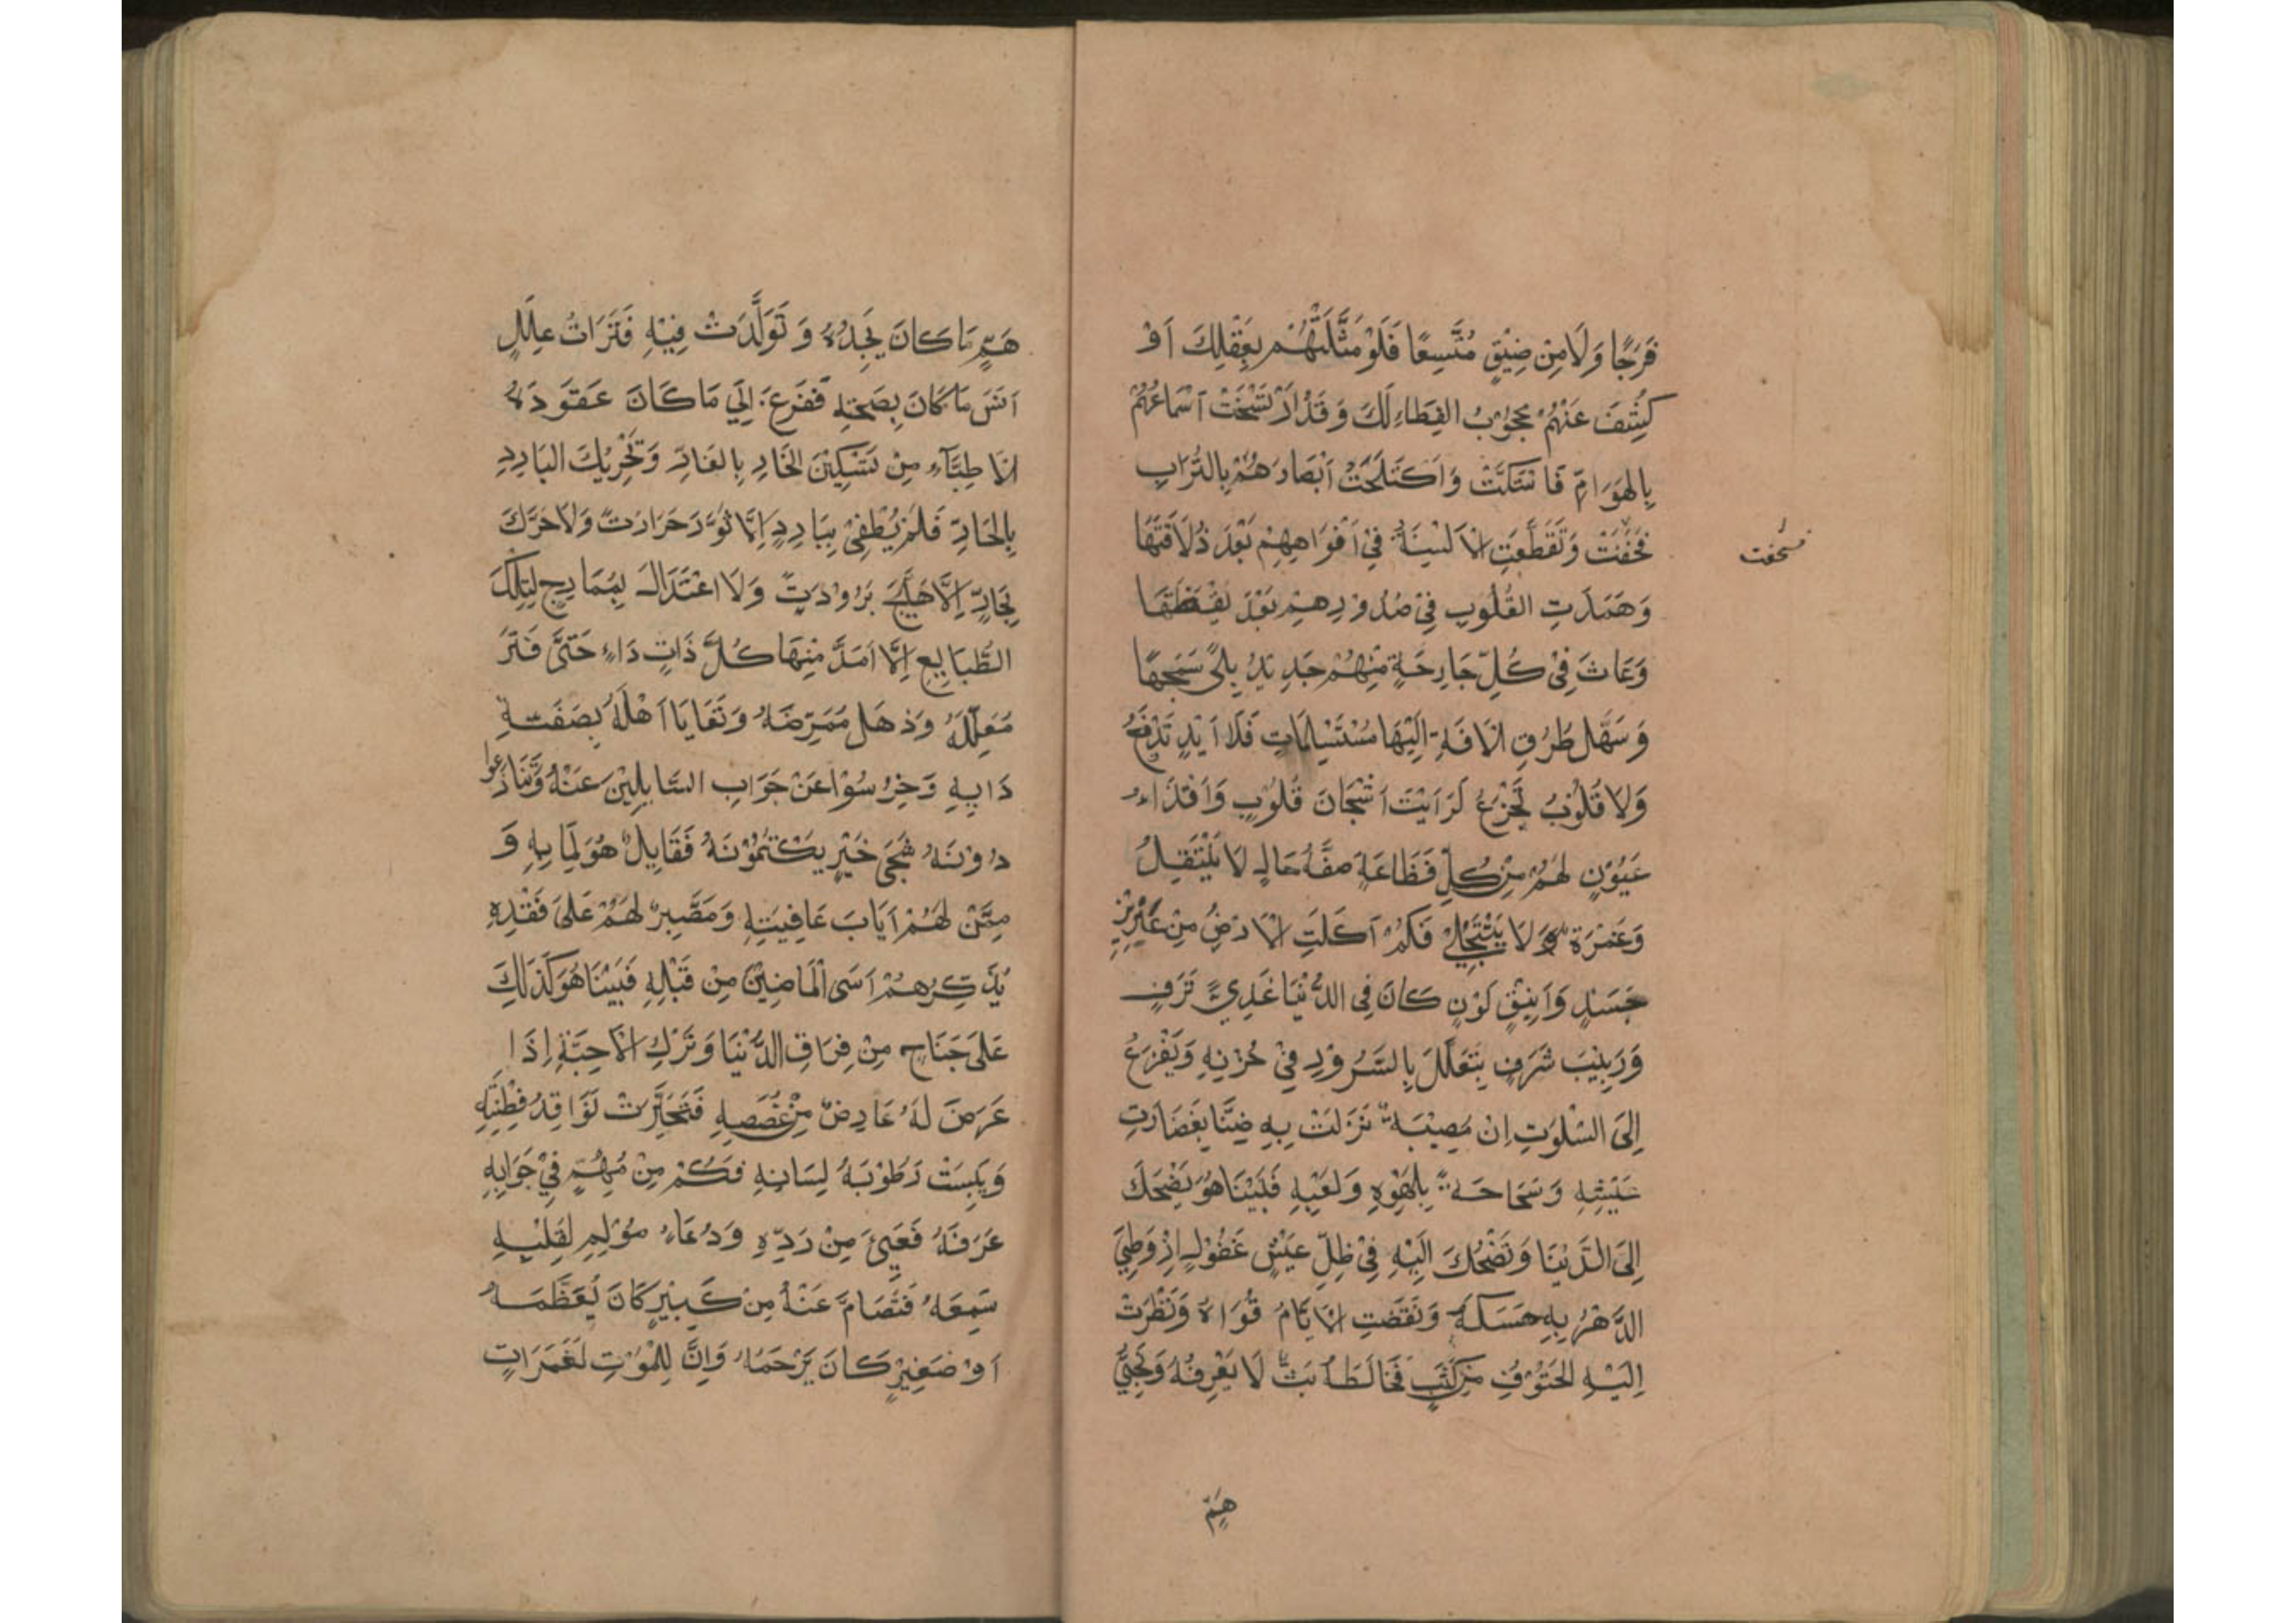 فَرَجًا وَلَا مِنْ ضِيْقٍ مُتَّسِعًا فَلَوْ مَثَّلْتَهُمْ بِعَقْلِكَ اَوْ
كُشِفَ عَنْهُمْ مَحْجُوْبُ الغِطَاءِ لَكَ وَقَدْ ارْتَسَخَتْ اَسْمَاعُهُمْ
بِالهَوَامِّ فَاسْتَكَّتْ وَاكْتَحَلَتْ اَبْصَارُهُمْ بِالتُّرَابِ
فَخُفَتْ وَتَقَطَّعَتِ الْاَلْسِنَةُ فِيْ اَفْوَاهِهِمْ بَعْدَ ذُلَاقَتِهَا
فسخفت
وَهَمَدَتِ القُلُوْبِ فِيْ صُدُوْرِهِمْ بَعْدَ يَقِظَتِهَا
وَعَاثَ فِيْ كُلِّ جَارِحَةٍ مِنْهُمْ جَدِيْدُ بِلًى سَمَّجَهَا
وَسَهَّلَ طُرُقِ الْاٰفَةِ اِلَيْهَا مُسْتَسْلِمَاتٍ فَلَا اَيْدٍ تَدْفَعُ
وَلَا قُلُوْبُ تَجْزَعُ لَرَاَيْتَ اَشْجَانَ قُلُوْبٍ وَاَقْذَاءَ
عُيُوْنٍ لَهُمْ مِنْ كُلِّ فَظَاعَةٍ صِفَةُ حَالٍ لَا يَنْتَقِلُ
وَغَمْرَةٌ وَلَا يَنْتَجِلِيْ فَكَمْ اَكَلَتِ الْاَرْضُ مِنْ عَزِيْزِ
جَسَدٍ وَاَنِيْقِ لَوْنٍ كَانَ فِي الدُّنْيَا غَذِيَّ تَرَفٍ
وَرَبِيْبَ شَرَفٍ يَتَعَلَّلَ بِالسُّرُوْرِ فِيْ حُزْنِهِ وَيَفْزَعُ
اِلَى السَّلْوَتِ اِنْ مُصِيْبَةٌ نَزَلَتْ بِهِ ضِنَّا بِغَضَارَتِ
عَيْشِهِ وَشَحَاحَةً بِلَهْوِهِ وَلَعِبِهِ فَبَيْنَاهُوَ يَضْحَكَ
اِلَى الدُّنْيَا وَتَضْحَكَ اِلَيْهِ فِيْ ظِلِّ عَيْشٍ غَفُوْلٍ اِذْ وَطِيَ
الدَّهْرُ بِهِ حَسَكَهُ وَنَقَضَتِ الْاَيَّامُ قُوَاهُ وَنَظَرَتْ
اِلَيْهِ الحَتُوْفُ مِنْ كَثَبٍ فَخَالَطَهُ بَثٌّ لَا يَعْرِفُهُ وَنَجِيُّ
هَمٍّ
هَمٍّ مَا كَانَ يَجِدُهُ وَتَوَلَّدَتْ فِيْهِ فَتَرَاتُ عِلَلٍ
اٰنَسَ مَا كَانَ بِصِحَّتِهِ فَفَزِعَ اِلَى مَا كَانَ عَقَوَدَهُ
الْاَطِبَّآءِ مِنْ تَسْكِيْنَ الحَارِ بِالقَارِّ وَتَحْرِيْكَ البَارِدِ
بِالحَارِّ فَلَمْ يُطْفِئْ بِبَارِدٍ اِلَّا ثَوَّرَ حَرَارَتً وَلَا حَرَّكَ
بِحَارٍّ اِلَّا هَيَّجَ بَرُوْدَتً وَلَا اعْتَدَالَ بِمُمَازِجٍ لِتِلْكَ
الطَّبَايِعِ اِلَّا اَمَدَّ مِنْهَا كُلَّ ذَاتِ دَاءٍ حَتَّى فَتَرَ
مُعَلِّلُهُ وَذَهَلَ مُمَرِّضَهُ وَتَعَايَا اَهْلُهُ بِصَفَتِ
دَايِهِ وَخَرِسُوْا عَنْ جَوَابِ السَّايِلِيْنَ عَنْهُ وَتَنَازَعُوا
دُوْنَهُ شَجَى خَبَرٍ يَكْتُمُوْنَهُ فَقَايِلٌ هُوَ لِمَا بِهِ وَ
مِمَّنْ لَهُمْ اَيَابَ عَافِيَتِهِ وَمُصَبِّرٌ لَهُمْ عَلَى فَقْدِهِ
يُذَكِّرُهُمْ اُسَى الْمَاضِيْنَ مِنْ قَبْلِهِ فَبَيْنَاهُوَ كَذَالِكَ
عَلَى جَنَاحٍ مِنْ فِرَاقِ الدُّنْيَا وَتَرْكِ الْاَحِبَّةِ اِذَا
عَرَضَ لَهُ عَارِضٌ مِنْ غُصَصِهِ فَتَحَيَّرَتْ نَوَاقِدُ فِطْنَتِهِ
وَيَبِسَتْ رَطُوْبَةُ لِسَانِهِ فَكَمْ مِنْ مُهِمٍّ فِيْ جَوَابِهِ
عَرَفَهُ فَعَيِيَ مِنْ رَدِّهِ وَدُعَاءٍ مُوْلِمٍ لِقَلْبِهِ
سَمِعَهُ فَتَصَامَّ عَنْهُ مِنْ كَبِيْرٍ كَانَ يُعَظِّمَهُ
اَوْ صَغِيْرٍ كَانَ يَرْحَمُهُ وَاِنَّ لِلْمَوْتِ لَغَمَرَاتٍ